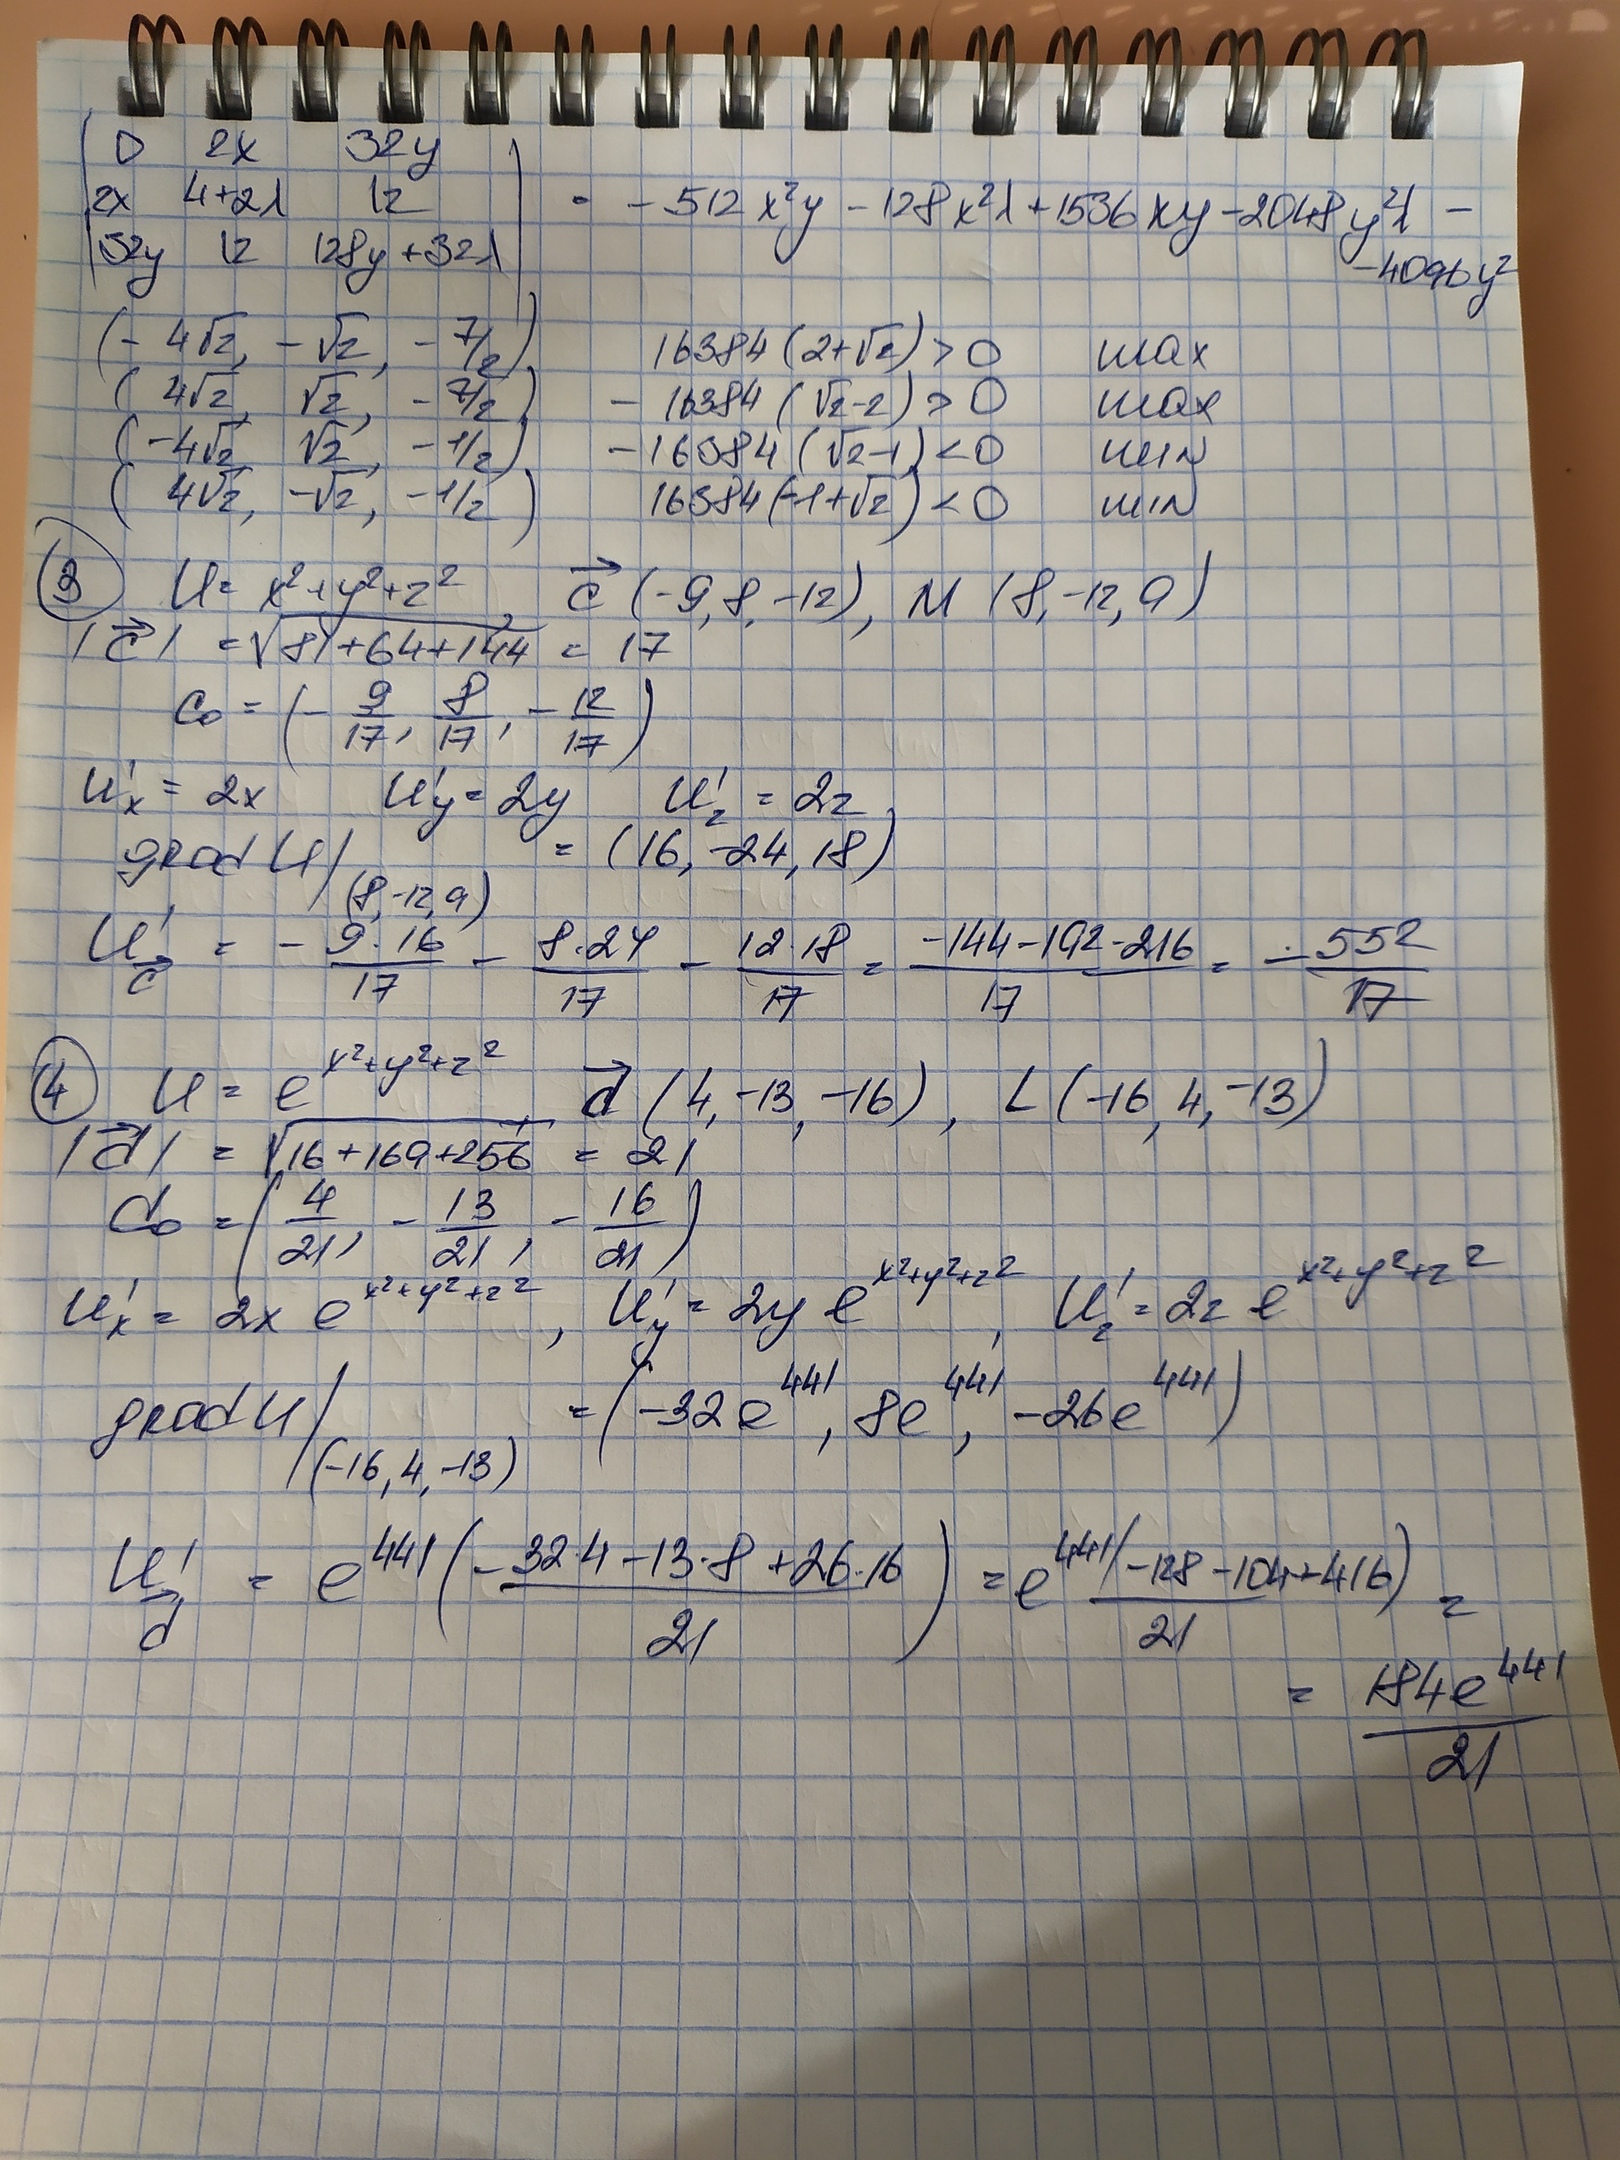 | 0 2x 32y |
| 2x 4+2λ 12 | = -512x²y - 128x²λ + 1536xy - 2048y²λ -
| 32y 12 128y+32λ | - 4096y²
(-4√2, -√2, -7/2) 16384(2+√2) > 0 max
(4√2, √2, -7/2) -16384(√2-2) > 0 max
(-4√2, √2, -1/2) -16384(√2-1) < 0 min
(4√2, -√2, -1/2) 16384(-1+√2) < 0 min
③ U = x²+y²+z², c⃗ (-9, 8, -12), M (8, -12, 9)
|c⃗| = √(81+64+144) = 17
c₀ = (-9/17, 8/17, -12/17)
U'x = 2x U'y = 2y U'z = 2z
grad U|(8,-12,9) = (16, -24, 18)
U'c⃗ = - 9·16/17 - 8·24/17 - 12·18/17 = (-144-192-216)/17 = -552/17
④ U = e^(x²+y²+z²) d⃗ (4, -13, -16), L (-16, 4, -13)
|d⃗| = √(16+169+256) = 21
d₀ = (4/21, -13/21, -16/21)
U'x = 2x e^(x²+y²+z²), U'y = 2y e^(x²+y²+z²), U'z = 2z e^(x²+y²+z²)
grad U|(-16,4,-13) = (-32e^441, 8e^441, -26e^441)
U'd⃗ = e^441 ((-32·4 - 13·8 + 26·16)/21) = e^441(-128-104+416)/21 =
= 184e^441/21